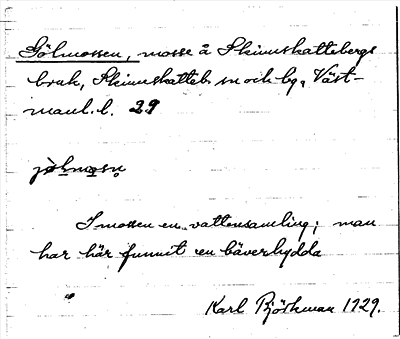 Gölmossen, mosse å Skinnskattebergs
bruk, Skinnskatteb. sn och bg, Väst-
manl. l. 29
jö̀lmọsṇ
I mossen en vattensamling; man
har här funnit en bäverhydda
Karl Björkman 1929.